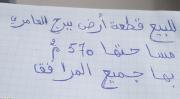 للبيع قطعة أرض ببرج العامري
مساحتها 570 م²
بها جميع المرافق